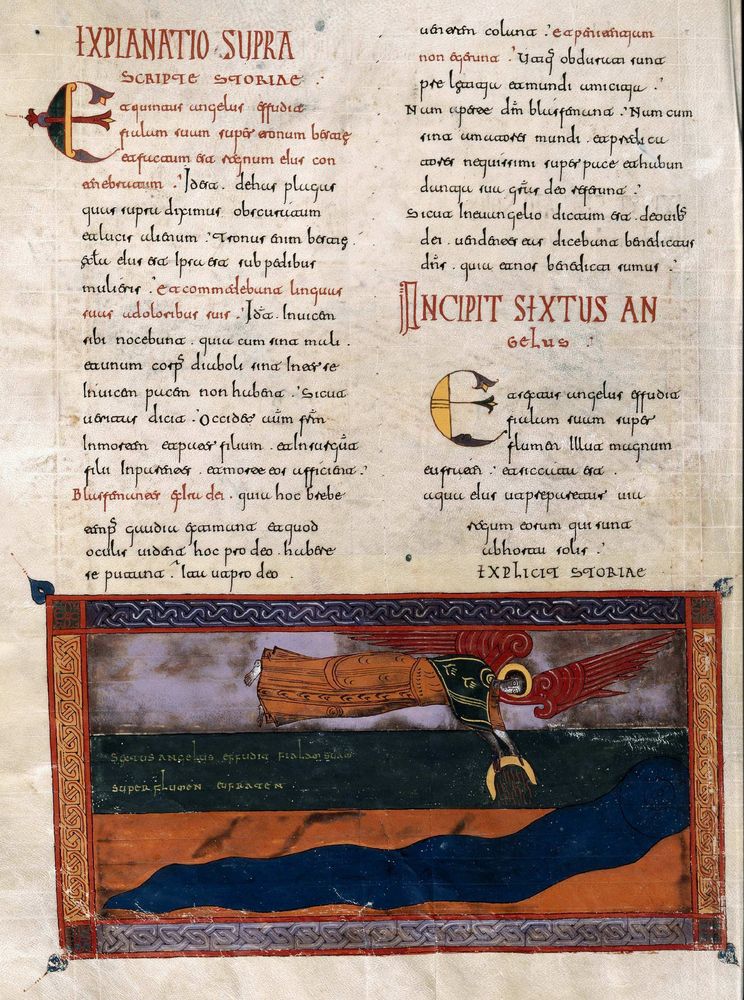 EXPLANATIO SUPRA
SCRIPTE STORIAE
Et quintus angelus effudit
fialam suam super tronum bestie
et factum est regnum eius con
tenebratum. Id est. de his plagis
quas supra diximus obscuratum
et a lucis alienum. Tronus enim bestie.
eius est ipsa est sub pedibus
mulieris. et commedebant linguas
suas a doloribus suis. Id est. Invicem
sibi nocebunt. quia cum sint mali.
et unum corps diaboli sint inter se
invicem pacem non habent. Sicut
veritas dicit. Occidet
in mortem et pater filium. et insurgunt
filii in parentes. et morte eos afficient.
Blasfemantes dei. quia hoc
gaudia et quod
oculis vident hoc pro deo. habere
se putant. Ita ut pro deo.
venerent coluna. et penitentiam
non egerunt. Utiq obdurati sunt
pre letitia et mundi amicitia.
Num aperte dnm blasfemant. Num cum
sint amatores mundi. et predica
tores nequissimi super pace et habun
dantia sua grtas deo referunt.
Sicut in evangelio dictum est. de ovib
dei. vendentes eas dicebant benedictus
dns. quia et nos benedicti sumus.
INCIPIT SIXTUS AN
GELUS
Et sextus angelus effudit
fialam suam super
flumen illut magnum
eufraten. et siccata est
aqua eius ut preparetur via
regum eorum qui sunt
ab hortu solis.
EXPLICIT STORIAE
SEXTUS ANGELUS EFFUDIT FIALAM SUAM
SUPER FLUMEN EUFRATEN